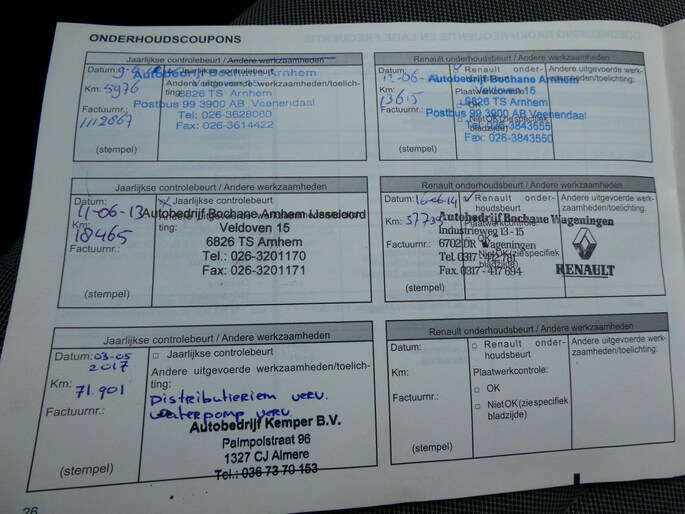 ONDERHOUDSCOUPONS
Jaarlijkse controlebeurt / Andere werkzaamheden
Datum:
Jaarlijkse controlebeurt
Autobedrijf Bochane Arnhem
Andere uitgevoerde werkzaamheden/toelichting:
6826 TS Arnhem
Km: 5976
Postbus 99 3900 AB Veenendaal
Factuurnr.:
Tel: 026-3628080
1112867
Fax: 026-3614422
(stempel)
Renault onderhoudsbeurt / Andere werkzaamheden
Datum:
Renault onderhoudsbeurt
Andere uitgevoerde werkzaamheden/toelichting:
Autobedrijf Bochane Arnhem
Veldoven 15
Km: 13615
6826 TS Arnhem
Factuurnr.:
Postbus 99 3900 AB Veenendaal
Tel: 026-3843555
Fax: 026-3843550
(stempel)
Jaarlijkse controlebeurt / Andere werkzaamheden
Datum: 11-06-13
Jaarlijkse controlebeurt
Autobedrijf Bochane Arnhem IJsseloord
Km: 18465
Veldoven 15
6826 TS Arnhem
Factuurnr.:
Tel.: 026-3201170
Fax: 026-3201171
(stempel)
Renault onderhoudsbeurt / Andere werkzaamheden
Datum: 16-6-14
Renault onderhoudsbeurt
Andere uitgevoerde werkzaamheden/toelichting:
Km: 37739
Autobedrijf Bochane Wageningen
Industrieweg 13 - 15
Factuurnr.:
6702 DR Wageningen
Tel. 0317 - 412 781
Fax. 0317 - 417 694
RENAULT
(stempel)
Jaarlijkse controlebeurt / Andere werkzaamheden
Datum: 03-05
2017
□ Jaarlijkse controlebeurt
Andere uitgevoerde werkzaamheden/toelich-
ting:
Km: 71.901
Distributieriem verv.
Factuurnr.:
waterpomp verv
Autobedrijf Kemper B.V.
Palmpolstraat 96
1327 CJ Almere
Tel.: 036 73 70 153
(stempel)
Renault onderhoudsbeurt / Andere werkzaamheden
Datum:
□ Renault onder-
houdsbeurt
Andere uitgevoerde werk-
zaamheden/toelichting:
Km:
Plaatwerkcontrole:
□ OK
Factuurnr.:
□ Niet OK (zie specifiek
bladzijde)
(stempel)
26